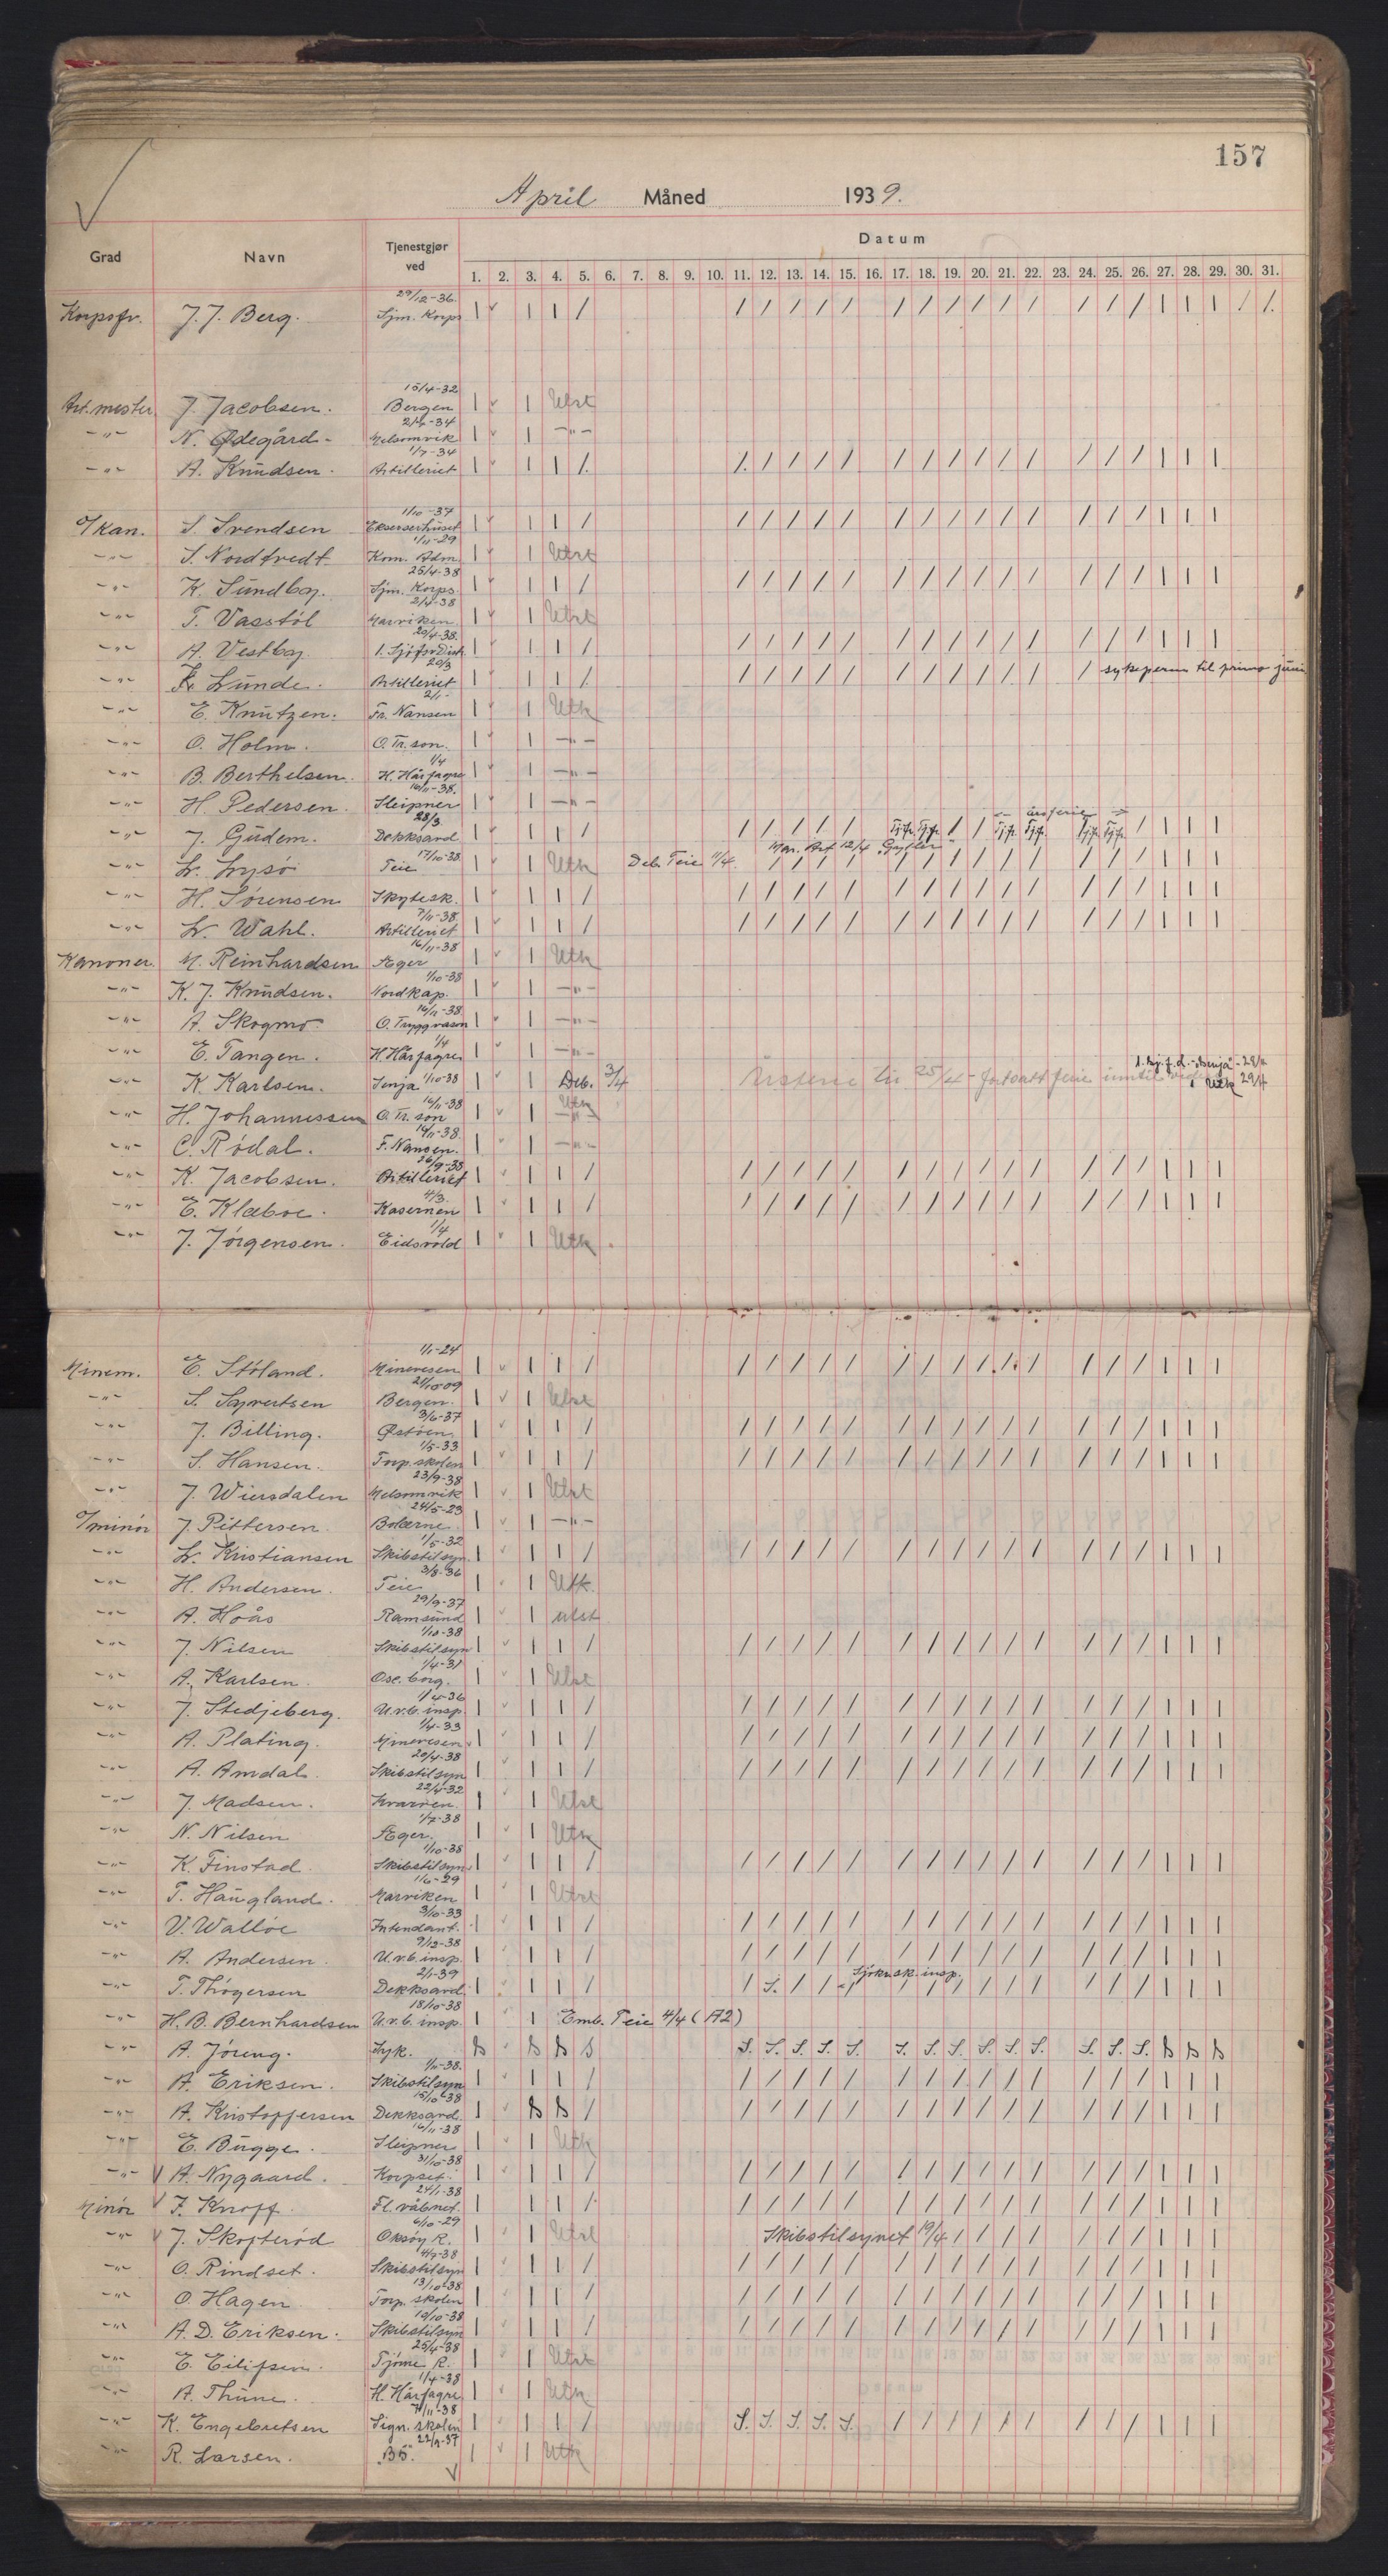 157
April Måned 1939.
Grad Navn Tjenestgjør ved Datum
1. 2. 3. 4. 5. 6. 7. 8. 9. 10. 11. 12. 13. 14. 15. 16. 17. 18. 19. 20. 21. 22. 23. 24. 25. 26. 27. 28. 29. 30. 31.
29/12-36.
Korpsfv. J. J. Berg. Sjm. Korps
15/4-32
Art. mester J. Jacobsen. Bergen Utst
-"- N. Ødegård. Melsomvik -"-
1/7-34
-"- A. Knudsen. Artilleriet
1/10-37
o/kan. S. Svendsen Ekserserhuset
1/11-29
-"- S. Nordtvedt Kom. Adm. Utst
25/4-38
-"- K. Sundby. Sjm. Korps.
2/4-38
-"- T. Vasstöl Marviken Utst
20/4-38.
-"- A. Vestby. 1. Sjöfsv Dist.
20/3
-"- Fr. Lunde. Artilleriet sykeperm til primo juni
2/1-
-"- E. Knutzen. Fr. Nansen Utk
-"- O. Holm. O. Tr. son. -"-
1/4
-"- B. Berthelsen. H. Hårfagre -"-
16/11-38.
-"- H. Pedersen. Sleipner -"-
28/3. <- årsferie ->
-"- J. Gudem. Dekksavd. Tj.fr. Tj.fr. Tj.fr. Tj.fr. Tj.fr. Tj.fr.
17/10-38.
-"- L. Lysö Teie Utk Deb. Teie 11/4. 12/4 "Gyller"
-"- H. Sørensen Skytesk.
7/11-38.
-"- L. Wahl. Artilleriet
16/11-38
Kanoner. M. Reinhardsen Æger Utk
1/10-38
-"- K. J. Knudsen. Nordkap. -"-
16/11-38
-"- A. Skogmo O. Tryggvason -"-
1/4
-"- E. Tangen. H. Hårfagre -"-
-"- K. Karlsen. Senja 1/10-38 Deb. 3/4 Årsferie til 25/4 - fortsatt ferie inntil videre Utk 29/4
16/11-38 Utk
-"- H. Johannessen O. Tr. son -"-
16/11-38.
-"- C. Rödal. F. Nansen. -"-
26/9-38
-"- K. Jacobsen. Artilleriet
4/3.
-"- E. Klæboe. Kasernen
1/4
-"- J. Jörgensen. Eidsvold Utk
1/1-24
Minem. E. Stöland. Minevesen
21/10-09
-"- S. Syvertsen Bergen. Utst
3/6-37
-"- J. Billing. Østöen.
1/5-33
-"- S. Hansen. Torp. skolen
23/9-38
-"- J. Wiersdalen Melsomvik Utst
24/5-23
o/minör J. Pettersen. Bolærne -"-
1/5-32
-"- L. Kristiansen Skibstilsyn.
3/8-36
-"- H. Andersen. Teie Utk.
29/9-37
-"- A. Hoås Ramsund utst
1/10-38
-"- J. Nilsen Skibstilsyn
1/4-31
-"- A. Karlsen. Osc. borg. Utst
1/4-36
-"- J. Stedjeberg. U.v.b. insp.
1/4-33
-"- A. Plating. Minevesen
20/4-38
-"- A. Amdal. Skibstilsyn
22/4-32
-"- J. Madsen. Kvarven. Utst
1/7-38
-"- N. Nilsen Æger. Utk
1/10-38
-"- K. Finstad. Skibstilsyn.
1/6-29
-"- T. Haugland. Marviken Utst
3/10-33
-"- V. Wallöe Intendant.
9/12-38
-"- A. Andersen. U.v.b. insp.
2/1-39
-"- T. Thögersen Dekksavd. S. Sjöknsk. insp.
18/10-38
-"- H. B. Bernhardsen U.v.b. insp. Emb. Teie 4/4 (A2)
-"- A. Jöreng. Syk. S S S S S. S. S. S. S. S. S. S. S. S. S. S. S. S. S S S
1/11-38.
-"- A. Eriksen. Skibstilsyn
15/10-38
-"- A. Kristoffersen Dekksavd. S S
16/11-38
-"- E. Bugge. Sleipner Utk
31/10-38
-"- A. Nygaard. Korpset.
24/1-38
Minör F. Knoff. Fl. våbnet.
6/10-29
-"- J. Skofteröd Oksöy R. Utst Skibstilsynet 19/4
4/7-38
-"- O. Rindset. Skibstilsyn
13/10-38
-"- O. Hagen. Torp. skolen
10/10-38
-"- A. D. Eriksen. Skibstilsyn
25/4-38
-"- E. Eilifsen. Tjöme R. Utst
1/4-38
-"- A. Thune. H. Hårfagre Utk
-"- K. Engebretsen Sign. skolen S. S. S. S. S.
22/9-37
-"- R. Larsen. "B5". Utk